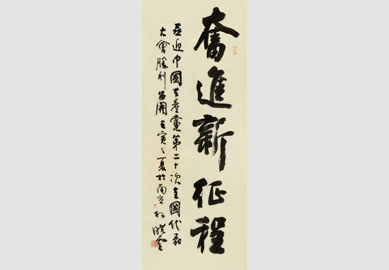 奮進新征程
喜迎中國共產黨第二十次全國代表
大會勝利召開 壬寅之夏於南京 孫曉雲